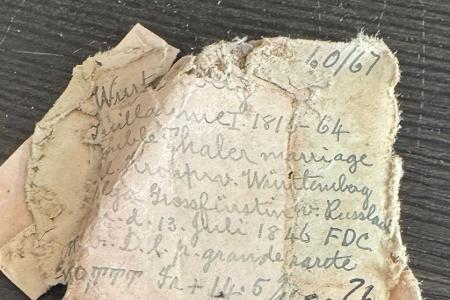 60/67
Wurt
Guillaume I. 1816-64
Double Thaler marriage
Kronpr. v. Württembag
Olga Grossfürstin v. Russland
d. 13. Juli 1846 FDC
D. l. p. grande rareté
Fr + 14.5
71